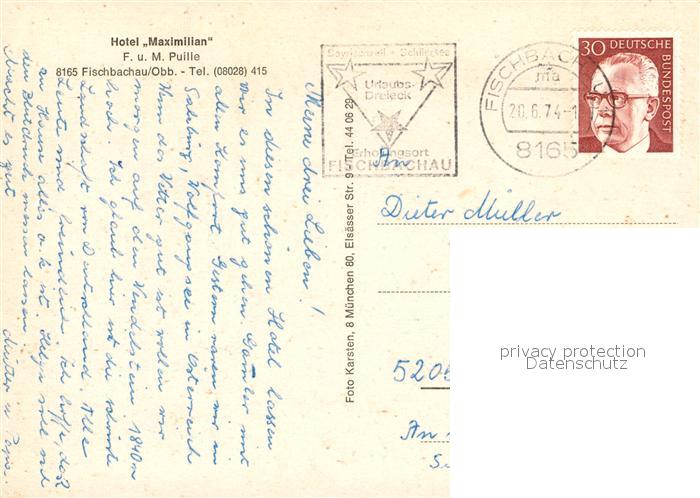 Hotel „Maximilian“
F. u. M. Puille
8165 Fischbachau/Obb. - Tel. (08028) 415
Meine drei Lieben!
In diesem schönen Hotel lassen
wir es uns gut gehen Samt mit
allem Komfort Gestern waren wir in
Salzburg, Wolfgangsee in Österreich
Wenn das Wetter gut ist wollen wir
morgen auf den Wendelstein 1840 m
hoch. Ich glaub hier ist die schönste
Landschaft von Deutschland. Alle
Leute sind freundlich. Ich hoffe, daß
zu Hause alles o.k. ist. Helga soll mal
den Blutdruck messen lassen
Macht es gut Mutter u. Papa.
Foto Karsten, 8 München 80, Elsässer Str. 9 Tel. 44 06 29
Bayrischzell - Schliersee
Urlaubs-
Dreieck
Erholungsort
FISCHBACHAU
FISCHBACHAU
20.6.74-1
8165
30 DEUTSCHE
BUNDESPOST
An
Dieter Müller
520
An
privacy protection
Datenschutz